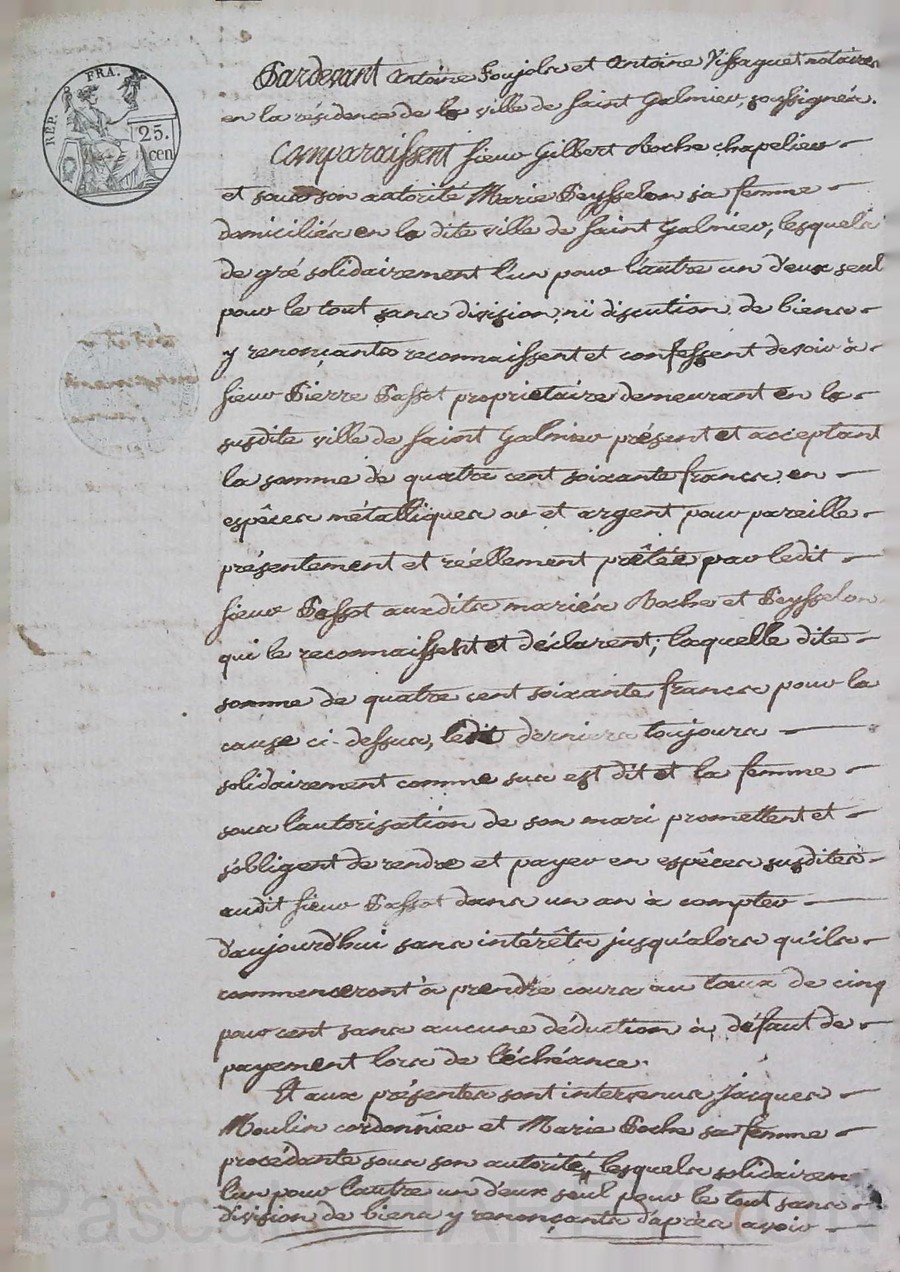 REP. FRA.
25.
cen
Pardevant Antoine Soujola et Antoine Vissaguet notaires
en la résidence de la ville de Saint Galmier, soussignés.
Comparaissent Sieur Gilbert Roche chapelier
et sous son autorité Marie Peysselon sa femme
domiciliés en la dite ville de Saint Galmier, lesquels
de gré solidairement l'un pour l'autre un d'eux seul
pour le tout sans division, ni discution de biens
y renonçants reconnaissent et confessent devoir à
Sieur Pierre Passot proprietaire demeurant en la
susdite ville de Saint Galmier présent et acceptant
la somme de quatre cent soixante francs en
espêces métalliques or et argent pour pareille
présentement et réellement prêtée par ledit
Sieur Passot auxdits mariés Roche et Peysselon
qui le reconnaissent et déclarent; laquelle dite
somme de quatre cent soixante francs pour la
cause ci-dessus, ledit derniers toujours
solidairement comme sus est dit et la femme
sous l'autorisation de son mari promettent et
s'obligent de rendre et payer en espêces susdites
audit Sieur Passot dans un an à compter
d'aujourd'hui sans intérêts jusqu'alors qu'ils
commenceront à prendre cours au taux de cinq
pour cent sans aucune déduction à défaut de
payement lors de l'échéance.
Et aux présentes sont intervenus Jacques
Moulin cordonnier et Marie Roche sa femme
procédante sous son autorité, lesquels solidairem
l'un pour l'autre un d'eux seul pour le tout sans
division de biens y renonçants d'après avoir